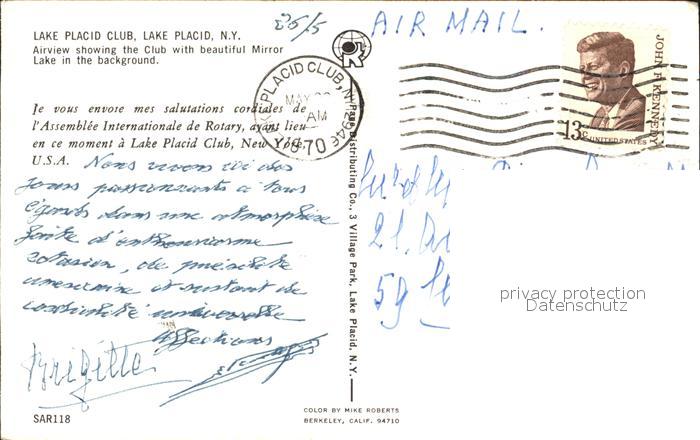 25/5
AIR MAIL.
LAKE PLACID CLUB, LAKE PLACID, N.Y.
Airview showing the Club with beautiful Mirror
Lake in the background.
JOHN F. KENNEDY
13c UNITED STATES
PLACID CLUB, NY 12946
MAY
AM
1970
Je vous envoie mes salutations cordiales de
l'Assemblée Internationale de Rotary, ayant lieu
en ce moment à Lake Placid Club, New York,
U.S.A.
Nous vivons ici des
jours passionnants à tous
égards dans une atmosphère
faite d'enthousiasme
rotarien, de
américaine et surtout de
cordialité universelle
Affections
Brigitte
Page Distributing Co., 3 Village Park, Lake Placid, N.Y.
21.
59
privacy protection
Datenschutz
SAR118
COLOR BY MIKE ROBERTS
BERKELEY, CALIF. 94710